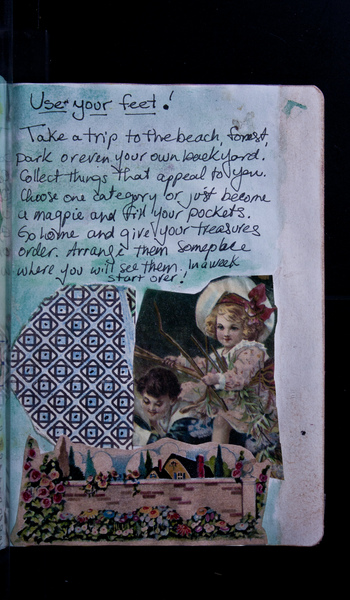 Use your feet!
Take a trip to the beach, forest,
park or even your own backyard.
Collect things that appeal to you.
Choose one category or just become
a magpie and fill your pockets.
Go home and give your treasures
order. Arrange them someplace
where you will see them. In a week
start over!